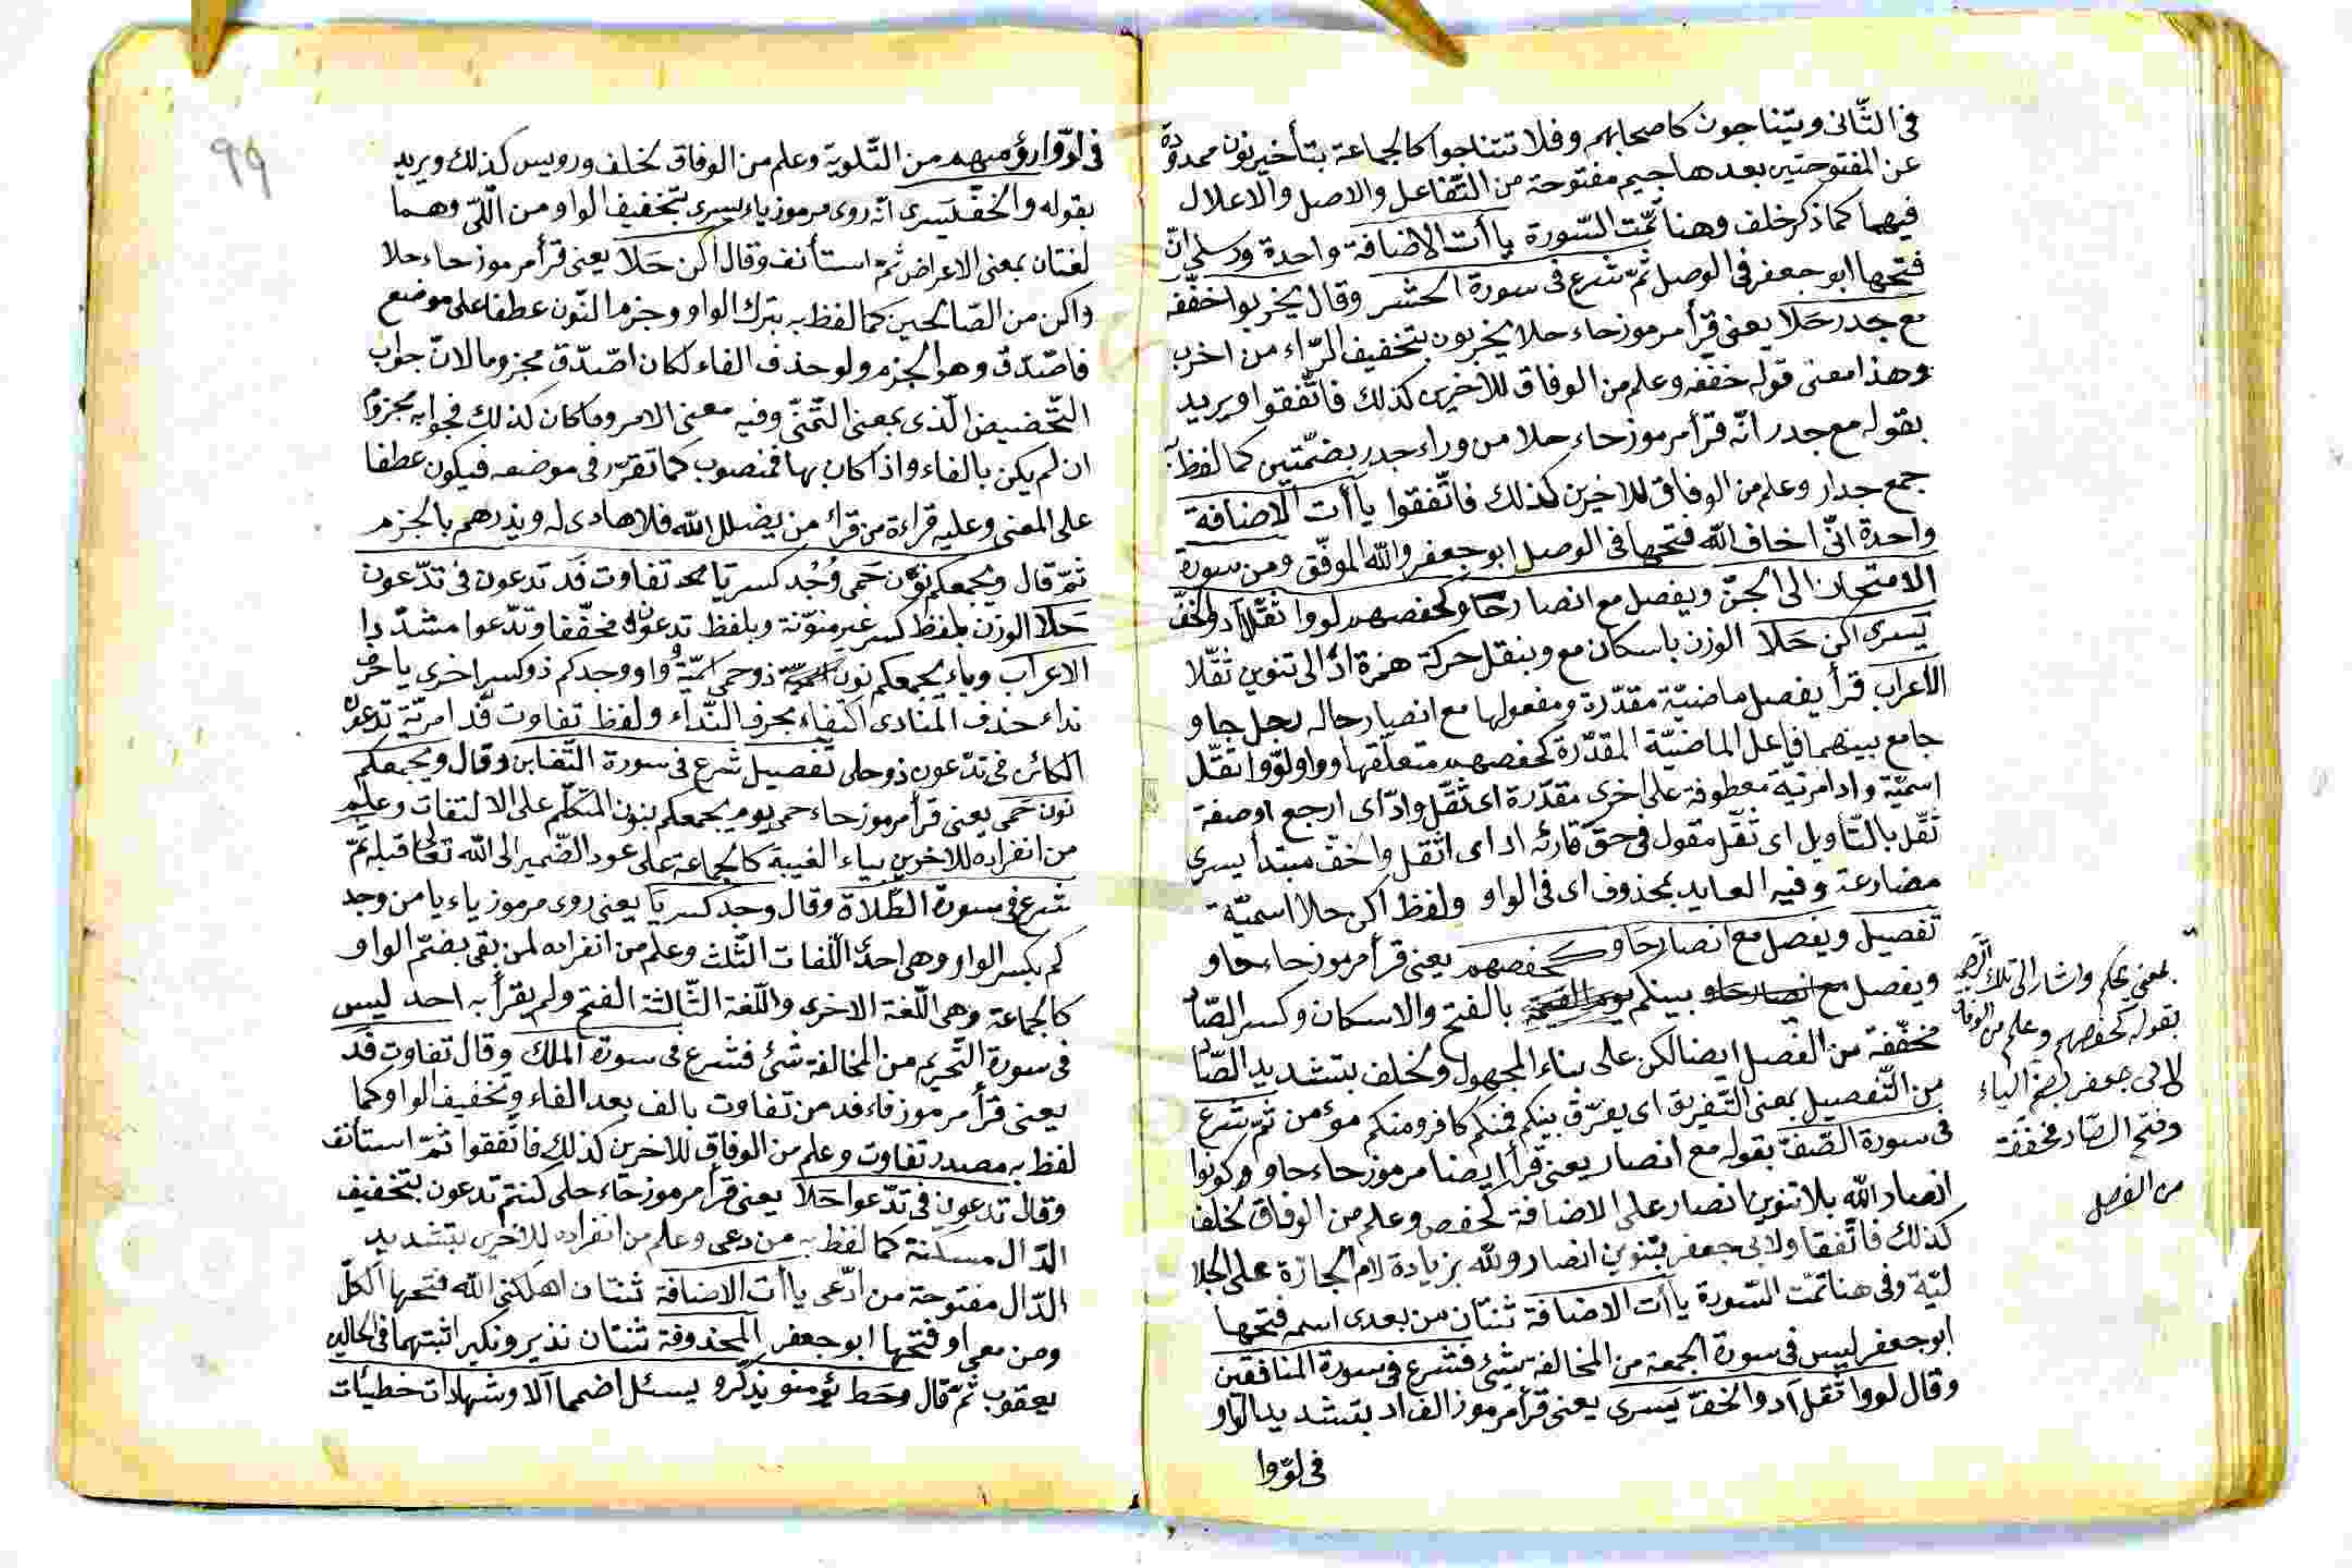 في الثّاني ويتناجون كاصحابهم وفلا تتناجوا كالجماعة بتأخير نون ممدودة
عن المفتوحتين بعدها جيم مفتوحة من التّفاعل والاصل والاعلال
فيهما كما ذكر خلف وهنا تمّت السّورة ياأت الاضافة واحدة ورسلي انّ
فتحها ابو جعفر في الوصل ثمّ شرع في سورة الحشر وقال يخربوا خفّفه
مع جدر حَلا يعني قرأ مرموز حاء حلا يخربون بتخفيف الرّاء من اخرب
وهذا معنى قوله خففه وعلم من الوفاق للاخرين كذلك فاتّفقوا ويريد
بقوله مع جدر انّه قرأ مرموز حاء حلا من وراء جدر بضمّتين كما لفظ به
جمع جدار وعلم من الوفاق للاخرين كذلك فاتّفقوا ياأت الاضافة
واحدة انّي اخاف الله فتحها في الوصل ابو جعفر والله الموفّق ومن سورة
الامتحان الى الجنّ ويفصل مع انصار حاو كحفصهم لووا ثقّلا اد والخفّ
يسرى اكن حَلا الوزن باسكان مع وبنقل حركة همزة اد الى تنوين ثقّلا
الاعراب قرأ يفصل ماضيّة مقدّرة ومفعولها مع انصار حاله رجل حاو
جامع بينهما فاعل الماضيّة المقدّرة كحفصهم متعلّقها وواو لوّوا ثقّل
اسميّة واد امريّة معطوفة على اخرى مقدّرة اى ثقّل وادّ اى ارجع اوصفة
ثقّل بالتّأويل اى ثقّل مقول في حقّ قارئه اد اى اثقل والخفّ مبتدأ يسرى
مضارعة وفيه العايد بمحذوف اى في الواو ولفظ اكن حلا اسميّة
تفصيل ويفصل مع انصار حَاو كحفصهم يعني قرأ مرموز حاء حاو
ويفصل بينكم بالفتح والاسكان وكسر الصّاد
مخفّفة من الفصل ايضا لكن على بناء المجهول ولخلف بتشديد الصّاد
من التّفصيل بمعنى التّفريق اى يفرّق بينكم فمنكم كافر ومنكم مؤمن ثمّ شرع
في سورة الصّفّ بقوله مع انصار يعني قرأ ايضا مرموز حاء حاو وكونوا
انصار الله بلا تنوين انصار على الاضافة كحفص وعلم من الوفاق لخلف
كذلك فاتّفقا ولابى جعفر بتنوين انصار ولله بزيادة لام الجارّة على الجلا
ليّة وفي هنا تمّت السّورة ياأت الاضافة ثنتان من بعدى اسمه فتحها
ابو جعفر ليس في سورة الجمعة من المخالفة شئ فشرع في سورة المنافقين
وقال لووا ثقّل اَد والخفّ يَسرى يعني قرأ مرموز الف اد بتشديد الواو
في لوّوا
بمعنى يحكم واشار الى تلك
بقوله كحفصهم وعلم من الوفاق
لابى جعفر بضم الياء
وفتح الصّاد مخففة
من الفصل
٩٩
في لوّوا رؤسهم من التّلوية وعلم من الوفاق لخلف ورويس كذلك ويريد
بقوله والخفّ يَسرى انّه روى مرموز ياء يسرى بتخفيف الواو من اللّي وهما
لغتان بمعنى الاعراض ثمّ استأنف وقال اكن حَلا يعني قرأ مرموز حاء حلا
واكن من الصّالحين كما لفظ به بترك الواو وجزم النّون عطفا على موضع
فاصّدّق وهو الجزم ولو حذف الفاء لكان اصّدّق مجزوما لانّ جواب
التّحضيض الّذى بمعنى التّمنّي وفيه معنى الامر وما كان كذلك فجوابه مجزوم
ان لم يكن بالفاء واذا كان بها فمنصوب كما تقرّر في موضعه فيكون عطفا
على المعنى وعليه قراءة من قرأ من يضلل الله فلا هادى له ويذرهم بالجزم
ثمّ قال ويجمعكم نون حَمى وُجْد كسر يا تفاوت فَد تدعون في تدّعون
حَلا الوزن بلفظ كسر غير منوّنة وبلفظ تدعون مخفّفا وتدّعوا مشدّدا
الاعراب وياء يجمعكم نون ذو حمى اسميّة واو وجدكم ذو كسر اخرى يا حرف
نداء حذف المنادى اكتفاء بحرف النّداء ولفظ تفاوت فَد امريّة تدعون
الكائن في تدّعون ذو حلى تفصيل شرع في سورة التّغابن وقال ويجمعكم
نون حَمى يعني قرأ مرموز حاء حمى يوم يجمعكم بنون المتكلّم على الالتفات وعلم
من انفراده للاخرين بياء الغيبة كالجماعة على عود الضّمير الى الله تعالى قبله ثمّ
شرع في سورة الطّلاق وقال وجد كسر يَا يعني روى مرموز ياء يا من وجد
كم بكسر الواو وهى احدى اللّغات الثّلث وعلم من انفراده لمن بقى بضمّ الواو
كالجماعة وهى اللّغة الاخرى واللّغة الثّالثة الفتح ولم يقرأ به احد ليس
في سورة التّحريم من المخالفة شئ فشرع في سورة الملك وقال تفاوت فَد
يعني قرأ مرموز فاء فد من تفاوت بالف بعد الفاء وتخفيف الواو كما
لفظ به مصدر تفاوت وعلم من الوفاق للاخرين كذلك فاتّفقوا ثمّ استأنف
وقال تدعون في تدّعوا حَلا يعني قرأ مرموز حاء حلى كنتم تدعون بتخفيف
الدّال مسكنة كما لفظ به من دعى وعلم من انفراده للاخرين بتشديد
الدّال مفتوحة من ادّعى ياأت الاضافة ثنتان اهلكني الله فتحها الكلّ
ومن معى او فتحها ابو جعفر المحذوفة ثنتان نذير ونكير اثبتهما في الحالين
يعقوب ثمّ قال وحَط يؤمنو يذكّرو يسئل اضمما اَلا وشهادات خطيئات